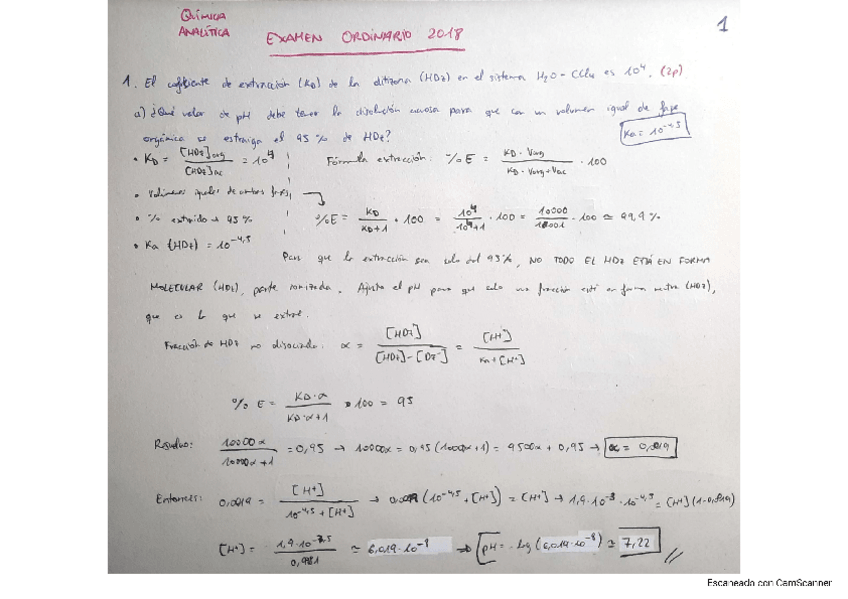 QUÍMICA
ANALÍTICA
EXAMEN ORDINARIO 2018
1
1. El coeficiente de extracción (KD) de la ditizona (HDz) en el sistema H2O - CCl4 es 10⁴. (2p)
a) ¿Qué valor de pH debe tener la disolución acuosa para que con un volumen igual de fase
orgánica se extraiga el 95 % de HDz?
Ka = 10^-4,5
• KD = [HDz]org / [HDz]ac = 10⁴
Fórmula extracción: % E = KD · Vorg / KD · Vorg + Vac · 100
• Volúmenes iguales de ambas fases
• % extraído → 95 %
%E = KD / KD+1 · 100 = 10⁴ / 10⁴+1 · 100 = 10000 / 10001 · 100 ≃ 99,9 %
• Ka (HDz) = 10^-4,5
Para que la extracción sea solo del 95%, NO TODO EL HDz ESTÁ EN FORMA
MOLECULAR (HDz), parte ionizada. Ajusta el pH para que solo una fracción esté en forma neutra (HDz),
que es lo que se extrae.
Fracción de HDz no disociada: α = [HDz] / [HDz] - [Dz⁻] = [H⁺] / Ka + [H⁺]
% E = KD · α / KD · α + 1 · 100 = 95
Resuelvo: 10000α / 10000α + 1 = 0,95 → 10000α = 0,95 (10000α + 1) = 9500α + 0,95 → α = 0,0019
Entonces: 0,0019 = [H⁺] / 10^-4,5 + [H⁺] → 0,0019 (10^-4,5 + [H⁺]) = [H⁺] → 1,9·10⁻³ · 10^-4,5 = [H⁺] (1-0,0019)
[H⁺] = 1,9·10^-7,5 / 0,9981 ≃ 6,019·10⁻⁸ → pH = - log (6,019·10⁻⁸) ≃ 7,22
Escaneado con CamScanner